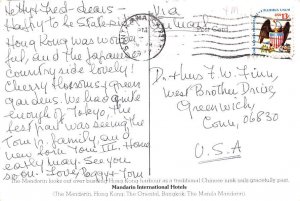 Hong Kong was wonder-
ful, and the Japanese
country side lovely!
Cherry blossoms & green
gardens. We had quite
enough of Tokyo, The
best part was seeing the
Tom Jr. family, and
new born Tom III. Home
early May. See you
soon. Love, Peggy + Tom
Via
Air mail
Post Card
YOKOHAMA
13c
Dr + Mrs F. W. Finn,
West Brother Drive,
Greenwich,
Conn. 06830
U.S.A
The Mandarin looks out over bustling Hong Kong harbour as a traditional Chinese junk sails gracefully past.
Mandarin International Hotels
(The Mandarin, Hong Kong; The Oriental, Bangkok; The Manila Mandarin)